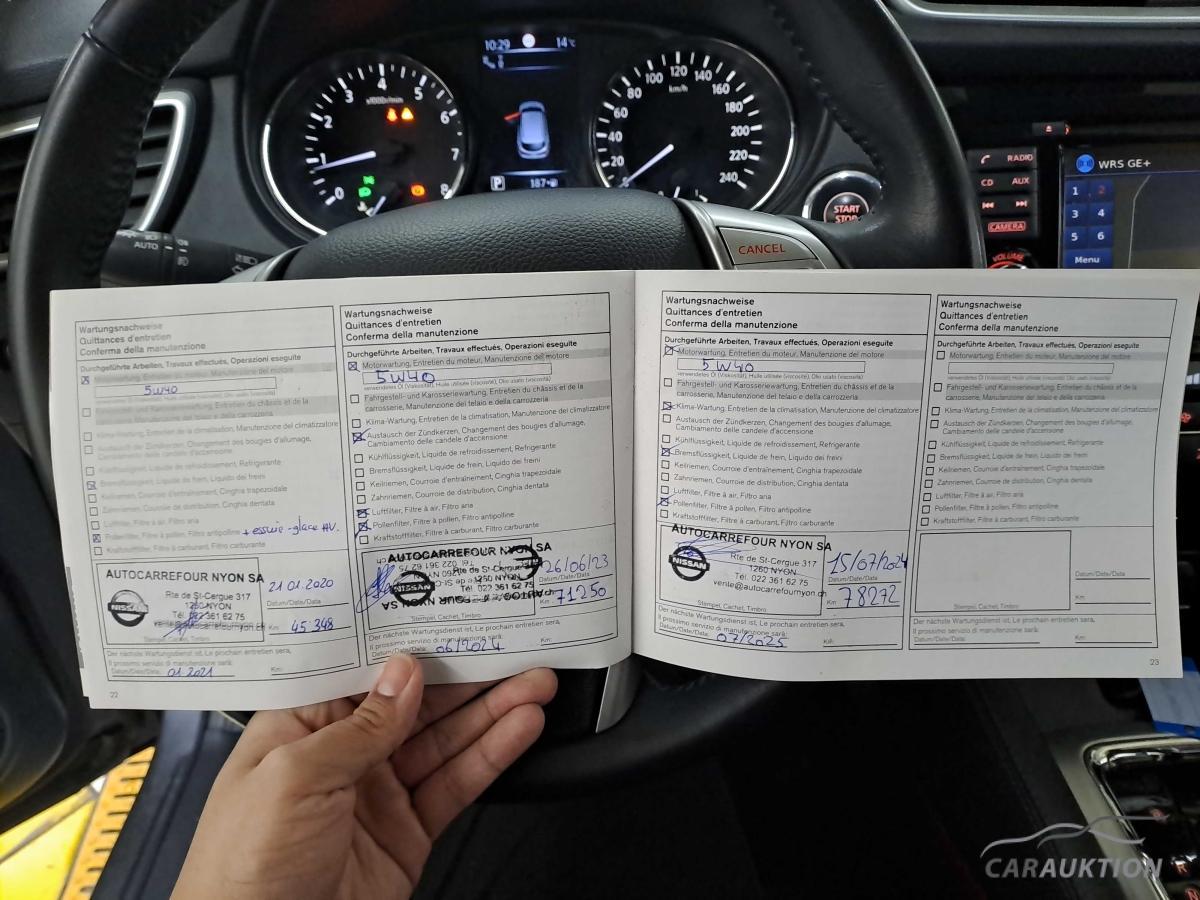 10:29 14°C
1 2 3 4 5 6 7 8 0
x1000r/min
20 40 60 80 100 120 140 160 180 200 220 240
km/h
P 187
START
STOP
CANCEL
AUTO
RADIO
CD AUX
CAMERA
VOLUME
WRS GE+
1 2
3 4
5 6
Menu
Wartungsnachweise
Quittances d'entretien
Conferma della manutenzione
Durchgeführte Arbeiten, Travaux effectués, Operazioni eseguite
Motorwartung, Entretien du moteur, Manutenzione del motore
5W40
Fahrgestell- und Karosseriewartung, Entretien du châssis et de la
carrosserie, Manutenzione del telaio e della carrozzeria
Klima-Wartung, Entretien de la climatisation, Manutenzione del climatizzatore
Austausch der Zündkerzen, Changement des bougies d'allumage,
Cambiamento delle candele d'accensione
Kühlflüssigkeit, Liquide de refroidissement, Refrigerante
Bremsflüssigkeit, Liquide de frein, Liquido dei freini
Keilriemen, Courroie d'entraînement, Cinghia trapezoidale
Zahnriemen, Courroie de distribution, Cinghia dentata
Luftfilter, Filtre à air, Filtro aria
Pollenfilter, Filtre à pollen, Filtro antipolline + essuie-glace AV.
Kraftstofffilter, Filtre à carburant, Filtro carburante
AUTOCARREFOUR NYON SA
Rte de St-Cergue 317
1260 NYON
Tél. 022 361 62 75
vente@autocarrefournyon.ch
NISSAN
Stempel, Cachet, Timbro
21 01.2020
Datum/Date/Data
Km: 45 348
Der nächste Wartungsdienst ist, Le prochain entretien sera,
Il prossimo servizio di manutenzione sarà:
Datum/Date/Data: 01.2021 Km:
22
Wartungsnachweise
Quittances d'entretien
Conferma della manutenzione
Durchgeführte Arbeiten, Travaux effectués, Operazioni eseguite
Motorwartung, Entretien du moteur, Manutenzione del motore
5W40
verwendetes Öl (Viskosität), Huile utilisée (viscosité), Olio usato (viscosità)
Fahrgestell- und Karosseriewartung, Entretien du châssis et de la
carrosserie, Manutenzione del telaio e della carrozzeria
Klima-Wartung, Entretien de la climatisation, Manutenzione del climatizzatore
Austausch der Zündkerzen, Changement des bougies d'allumage,
Cambiamento delle candele d'accensione
Kühlflüssigkeit, Liquide de refroidissement, Refrigerante
Bremsflüssigkeit, Liquide de frein, Liquido dei freini
Keilriemen, Courroie d'entraînement, Cinghia trapezoidale
Zahnriemen, Courroie de distribution, Cinghia dentata
Luftfilter, Filtre à air, Filtro aria
Pollenfilter, Filtre à pollen, Filtro antipolline
Kraftstofffilter, Filtre à carburant, Filtro carburante
AUTOCARREFOUR NYON SA
Rte de St-Cergue
1260 NYON
NISSAN
Stempel, Cachet, Timbro
26/06/23
Datum/Date/Data
Km: 71250
Der nächste Wartungsdienst ist, Le prochain entretien sera,
Il prossimo servizio di manutenzione sarà:
Datum/Date/Data: 06/2024 Km:
Wartungsnachweise
Quittances d'entretien
Conferma della manutenzione
Durchgeführte Arbeiten, Travaux effectués, Operazioni eseguite
Motorwartung, Entretien du moteur, Manutenzione del motore
5W40
verwendetes Öl (Viskosität), Huile utilisée (viscosité), Olio usato (viscosità)
Fahrgestell- und Karosseriewartung, Entretien du châssis et de la
carrosserie, Manutenzione del telaio e della carrozzeria
Klima-Wartung, Entretien de la climatisation, Manutenzione del climatizzatore
Austausch der Zündkerzen, Changement des bougies d'allumage,
Cambiamento delle candele d'accensione
Kühlflüssigkeit, Liquide de refroidissement, Refrigerante
Bremsflüssigkeit, Liquide de frein, Liquido dei freini
Keilriemen, Courroie d'entraînement, Cinghia trapezoidale
Zahnriemen, Courroie de distribution, Cinghia dentata
Luftfilter, Filtre à air, Filtro aria
Pollenfilter, Filtre à pollen, Filtro antipolline
Kraftstofffilter, Filtre à carburant, Filtro carburante
AUTOCARREFOUR NYON SA
Rte de St-Cergue 317
1260 NYON
Tél. 022 361 62 75
vente@autocarrefournyon.ch
NISSAN
Stempel, Cachet, Timbro
15/07/2024
Datum/Date/Data
Km: 78272
Der nächste Wartungsdienst ist, Le prochain entretien sera,
Il prossimo servizio di manutenzione sarà:
Datum/Date/Data: 07/2025 Km:
Wartungsnachweise
Quittances d'entretien
Conferma della manutenzione
Durchgeführte Arbeiten, Travaux effectués, Operazioni eseguite
Motorwartung, Entretien du moteur, Manutenzione del motore
verwendetes Öl (Viskosität), Huile utilisée (viscosité), Olio usato (viscosità)
Fahrgestell- und Karosseriewartung, Entretien du châssis et de la
carrosserie, Manutenzione del telaio e della carrozzeria
Klima-Wartung, Entretien de la climatisation, Manutenzione del climatizzatore
Austausch der Zündkerzen, Changement des bougies d'allumage,
Cambiamento delle candele d'accensione
Kühlflüssigkeit, Liquide de refroidissement, Refrigerante
Bremsflüssigkeit, Liquide de frein, Liquido dei freini
Keilriemen, Courroie d'entraînement, Cinghia trapezoidale
Zahnriemen, Courroie de distribution, Cinghia dentata
Luftfilter, Filtre à air, Filtro aria
Pollenfilter, Filtre à pollen, Filtro antipolline
Kraftstofffilter, Filtre à carburant, Filtro carburante
Stempel, Cachet, Timbro
Datum/Date/Data
Km:
Der nächste Wartungsdienst ist, Le prochain entretien sera,
Il prossimo servizio di manutenzione sarà:
Datum/Date/Data: Km:
23
CARAUKTION